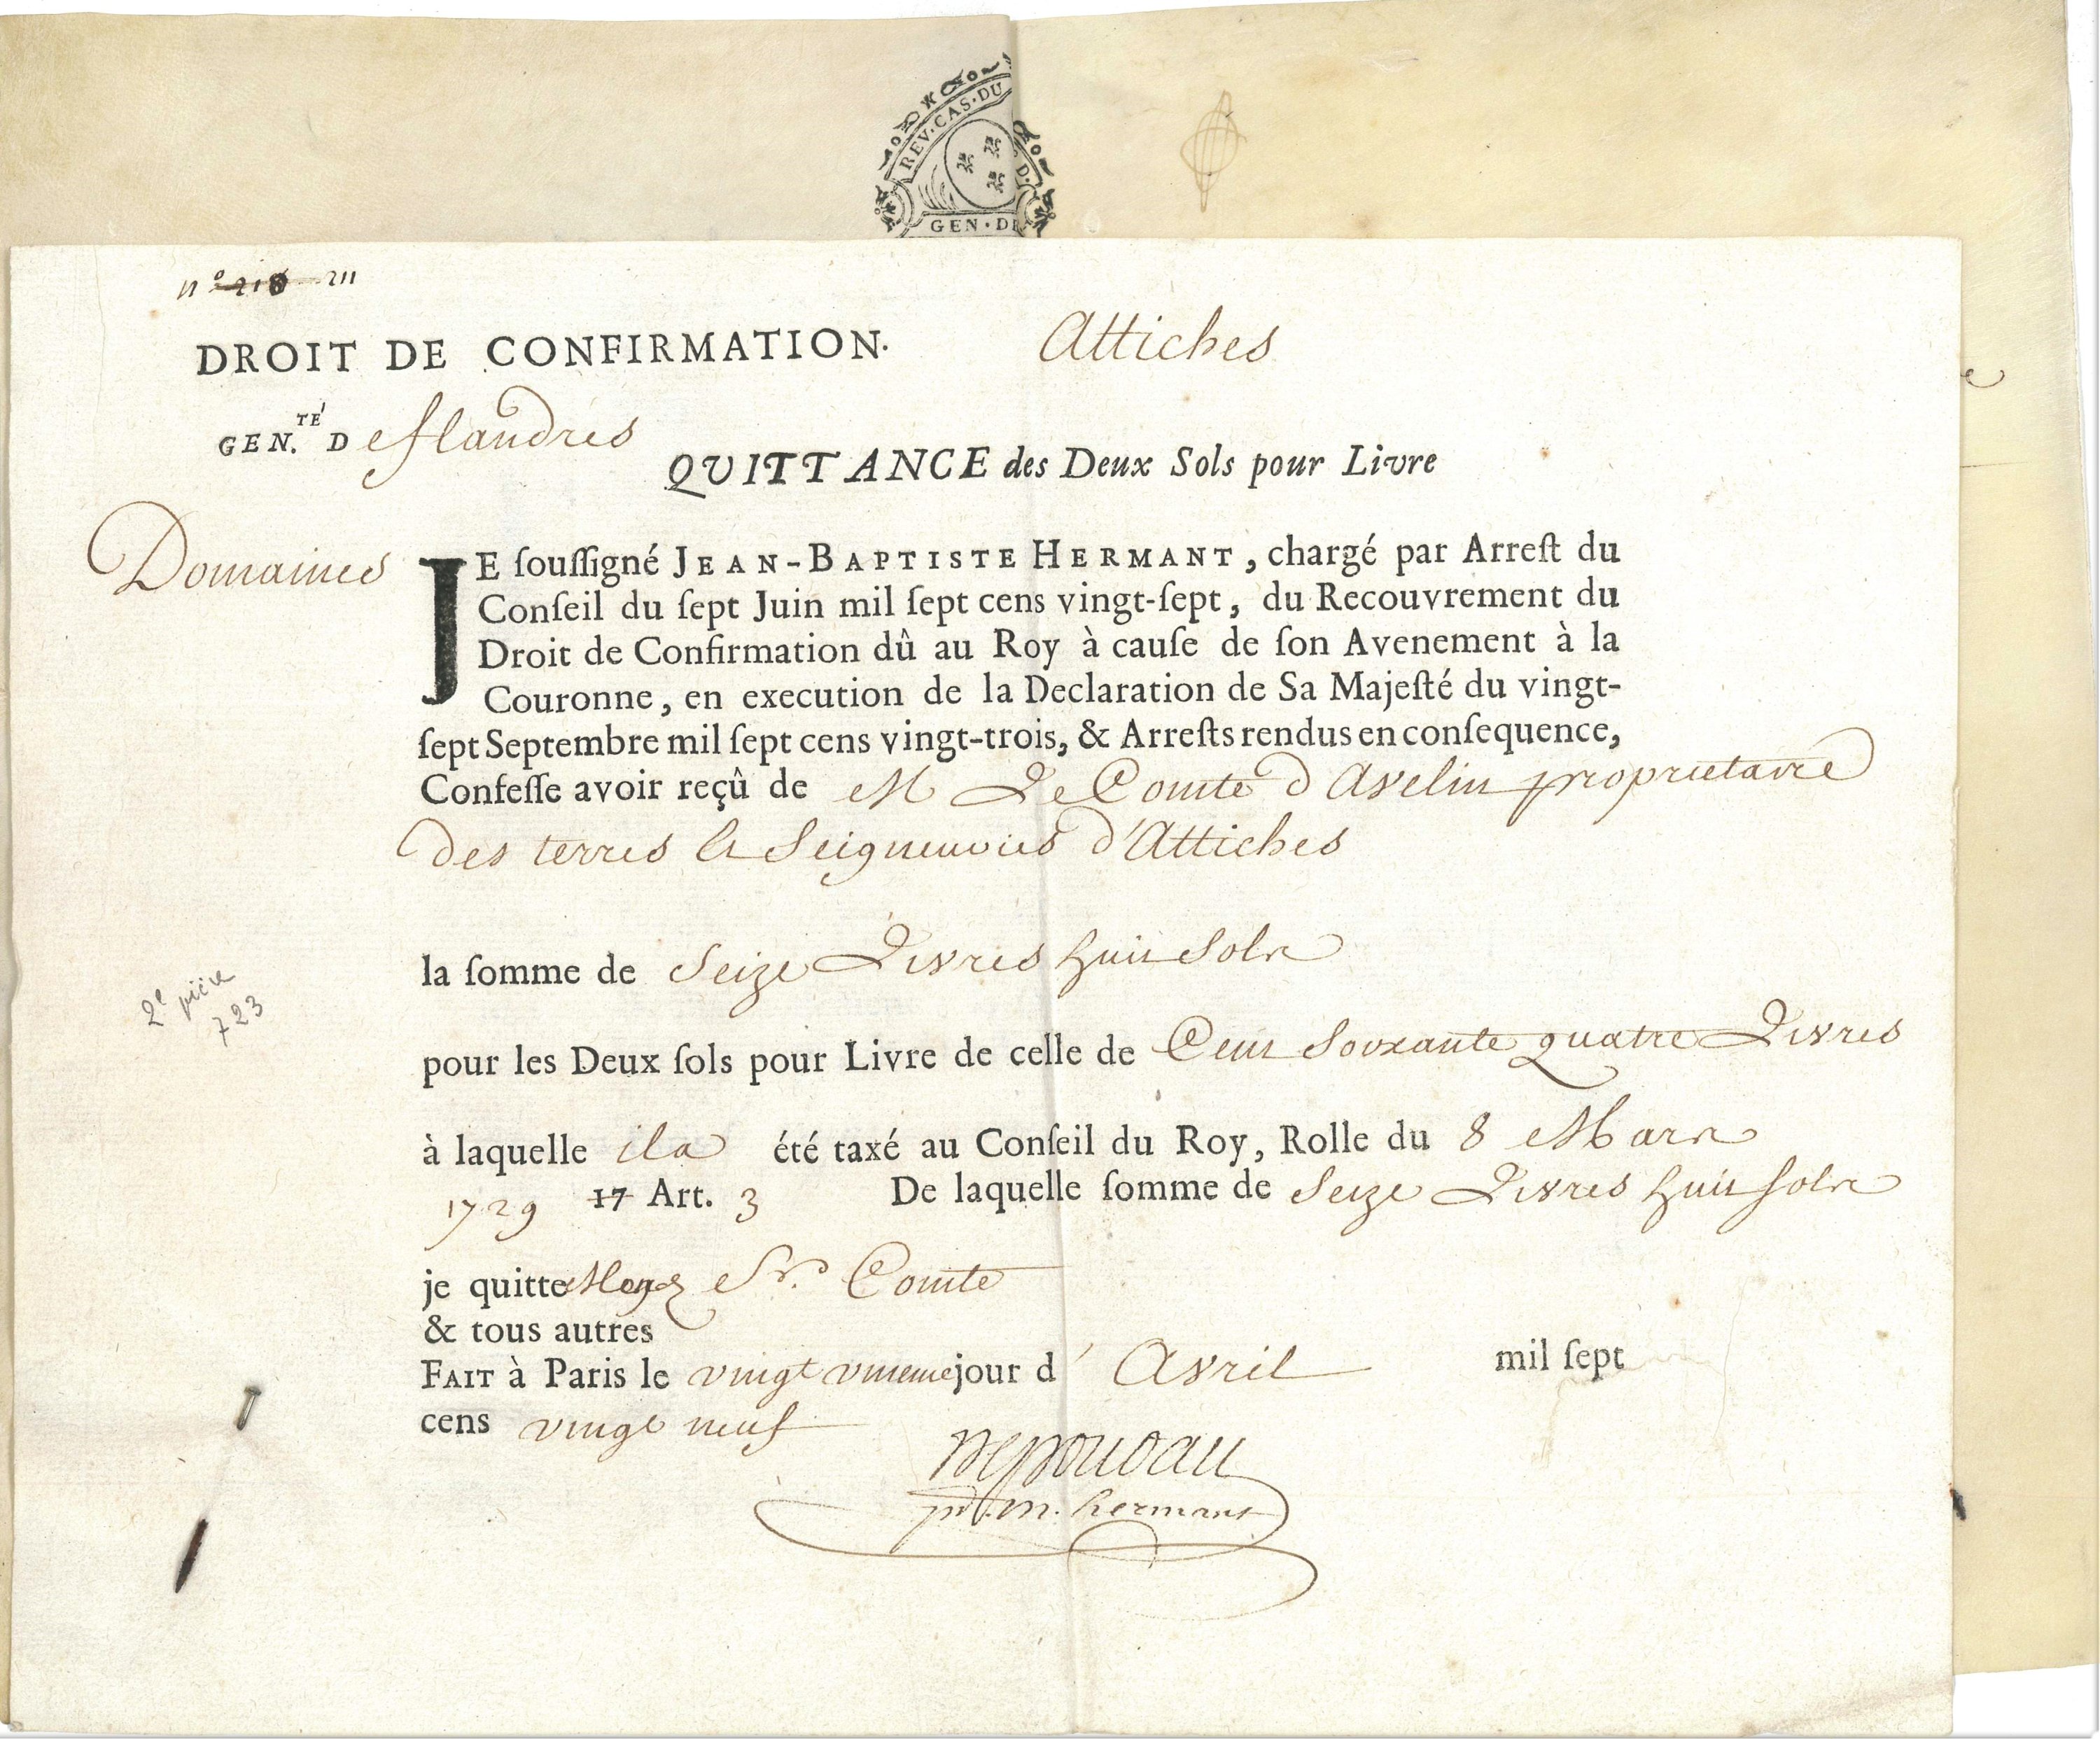 REV·CAS·DU D.
GEN·DE
n.º 218 211
DROIT DE CONFIRMATION. Attiches
GEN.TÉ De flandres
QUITTANCE des Deux Sols pour Livre
Domaines
JE ſouſſigné JEAN-BAPTISTE HERMANT, chargé par Arreſt du
Conſeil du ſept Juin mil ſept cens vingt-ſept, du Recouvrement du
Droit de Confirmation dû au Roy à cauſe de ſon Avenement à la
Couronne, en execution de la Declaration de Sa Majeſté du vingt-
ſept Septembre mil ſept cens vingt-trois, & Arreſts rendus en conſequence,
Confeſſe avoir reçû de M Le Comte d Avelin proprietaire
des terres et Seigneuries d'Attiches
la ſomme de Seize Livres huit Sols
2e pièce
723
pour les Deux ſols pour Livre de celle de Cent Soixante quatre Livres
à laquelle il a été taxé au Conſeil du Roy, Rolle du 8 Mars
1729 17 Art. 3 De laquelle ſomme de Seize Livres huit ſols
je quitte Sr. Comte
& tous autres
FAIT à Paris le vingt unieme jour d' Avril mil ſept
cens vingt neuf
pr. m. hermant